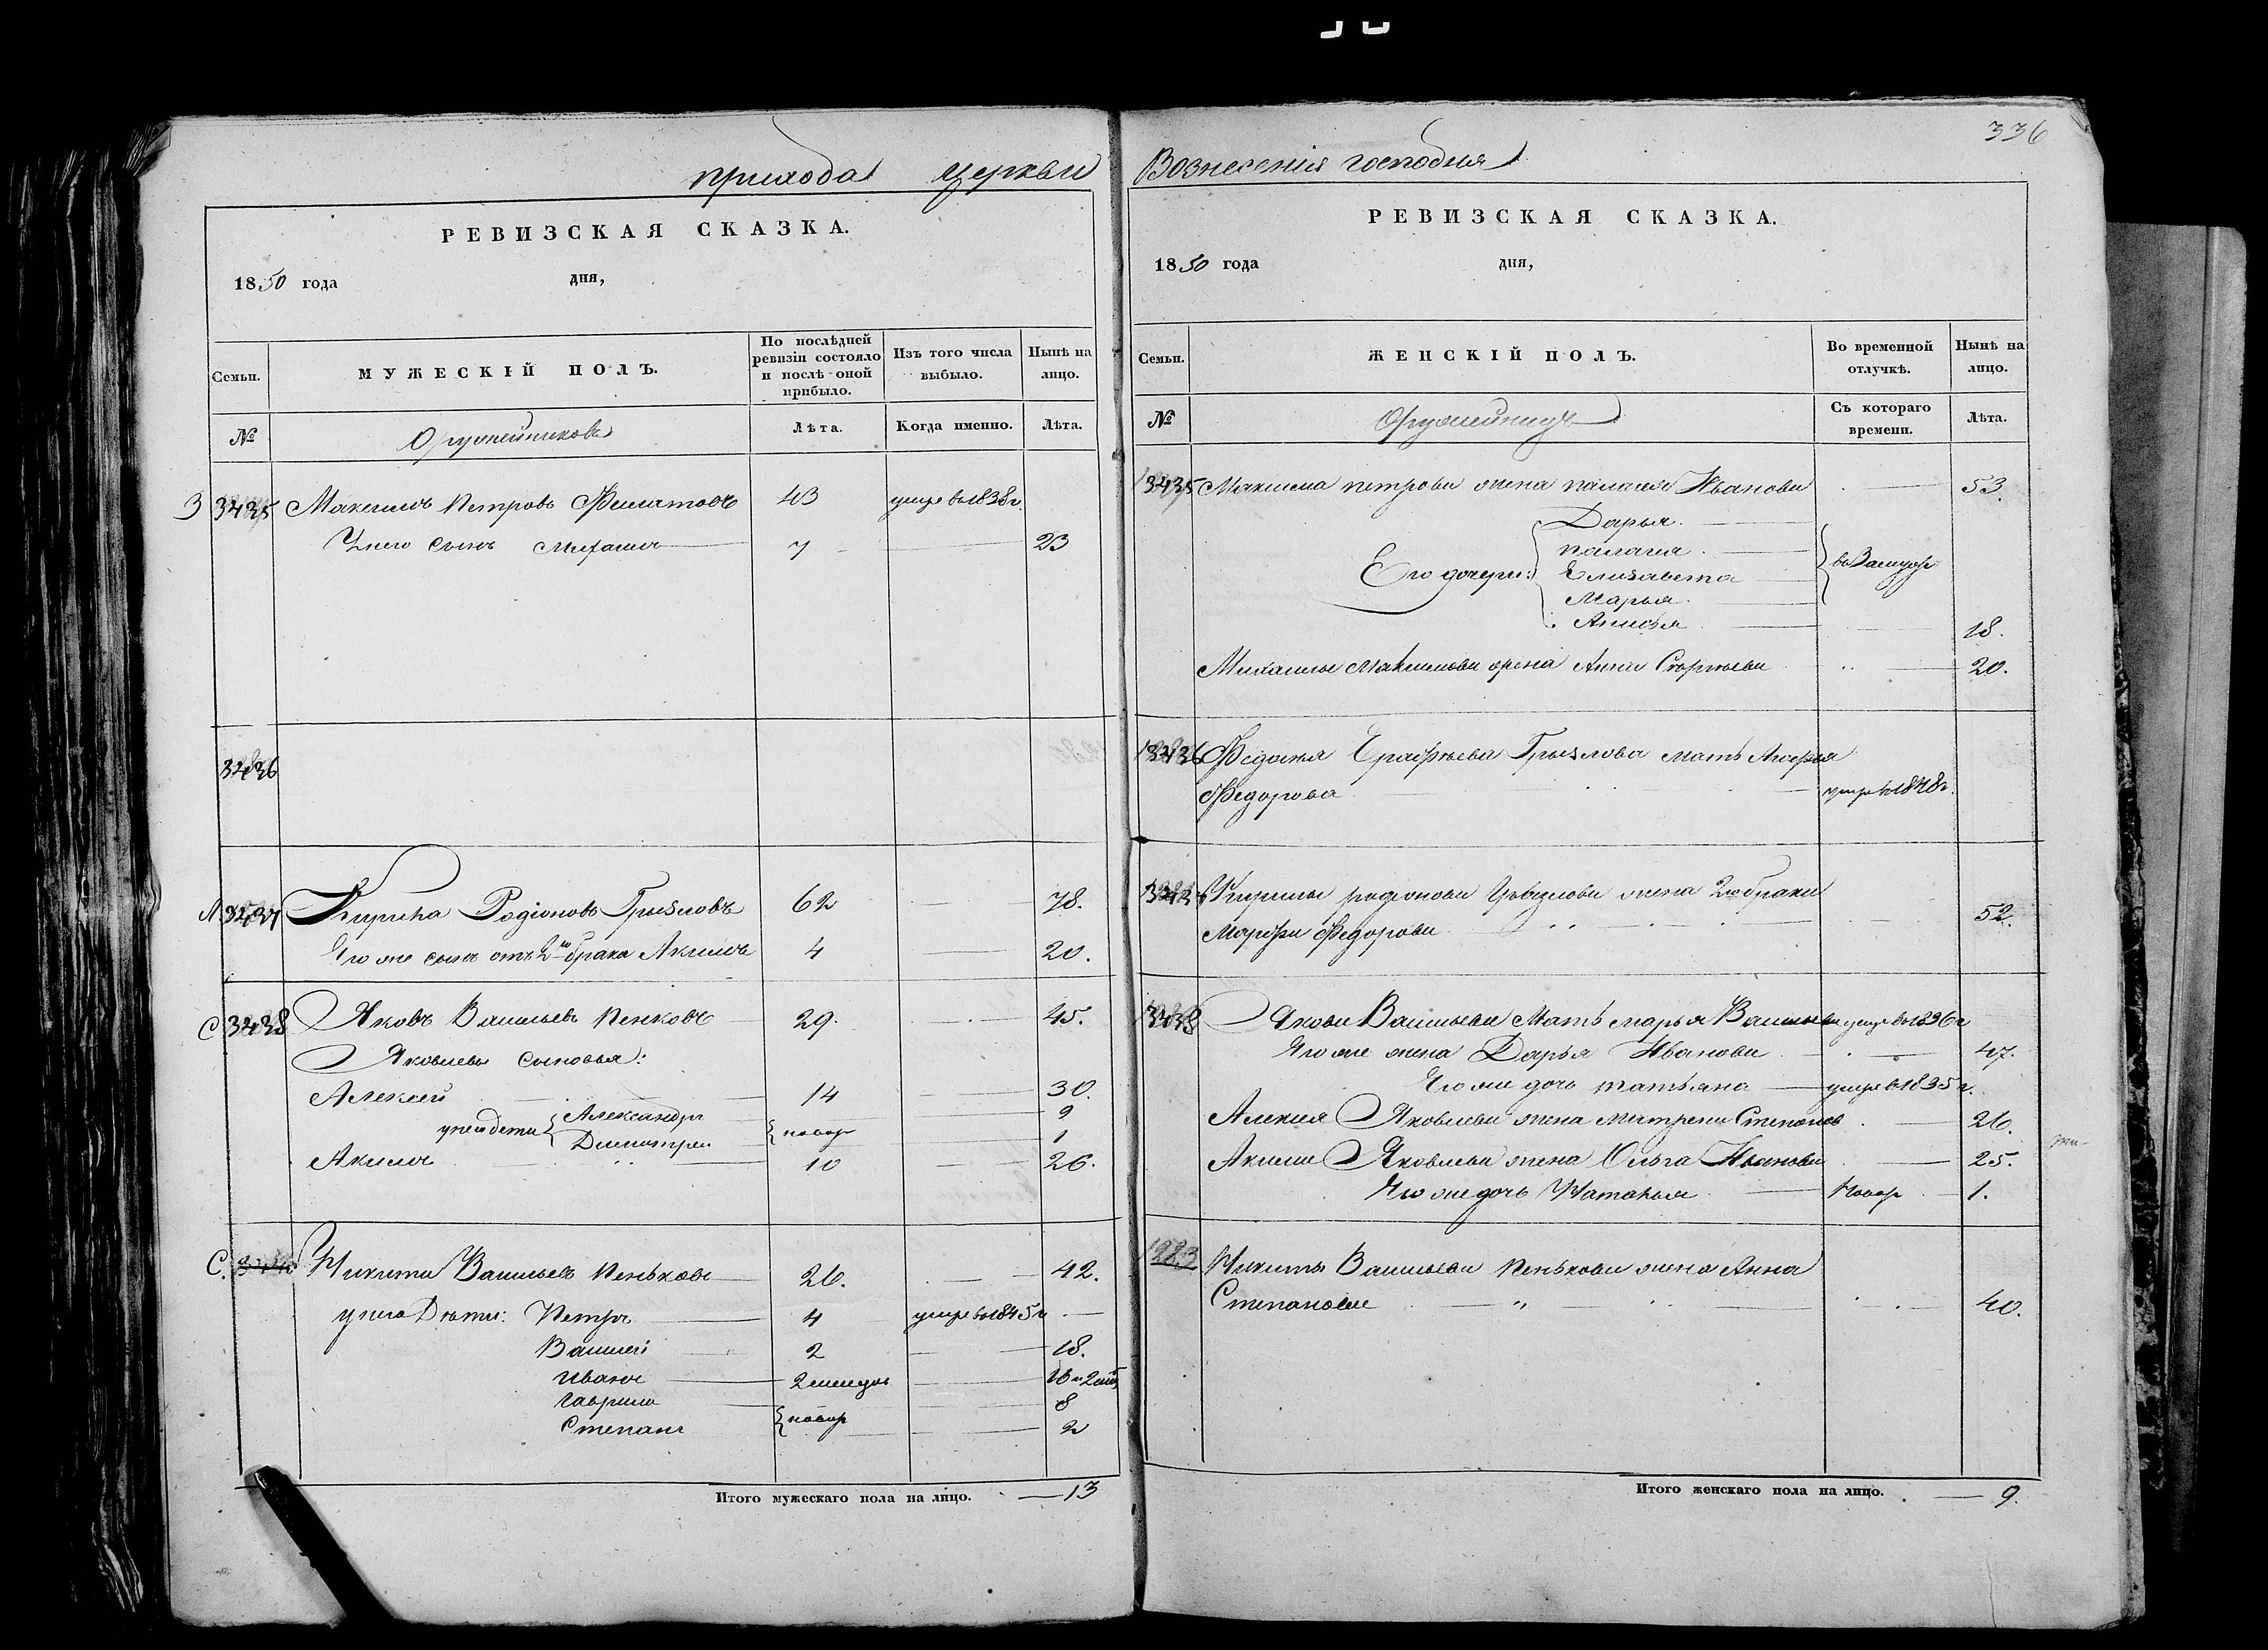 336
прихода церкви
РЕВИЗСКАЯ СКАЗКА.
1850 года дня,
Семьи.
МУЖЕСКІЙ ПОЛЪ.
По послѣдней ревизіи состояло и послѣ оной прибыло.
Изъ того числа выбыло.
Нынѣ на лицо.
№
Оружейниковъ
Лѣта.
Когда именно.
Лѣта.
3 3435 Максимъ Петровъ Филатовъ 43 умре въ 1838 г.
У него сынъ Михаилъ 7 23
3436
3437 Кирила Родіоновъ Грызловъ 62 78.
Его же сынъ отъ 2го брака Акимъ 4 20.
С 3438 Яковъ Васильевъ Пенковъ 29. 45.
Яковлевы сыновья:
Алексей 14 30.
у него дети Александръ 9
Димитрей новор 1
Акимъ 10 26.
С. Никита Васильевъ Пеньковъ 26. 42.
у него Дѣти: Петръ 4 умре въ 1845 г
Василей 2 18.
Иванъ 2 16
Гаврила 8
Степанъ новор 2
Итого мужескаго пола на лицо. 13
Вознесенія господня
РЕВИЗСКАЯ СКАЗКА.
1850 года дня,
Семьи.
ЖЕНСКІЙ ПОЛЪ.
Во временной отлучкѣ.
Нынѣ на лицо.
№
Оружейницъ
Съ котораго времени.
Лѣта.
3435 Максима петрова жена палагея Иванова 53.
Дарья.
палагея
Его дочери: Елизавета въ Замуж
Марья.
Анисья 18.
Михаилы Максимова жена Анна Сергеева 20.
3436 Федосья Ерофеева Грызлова мать
Федорова умре въ 1848 г.
3437 Кирилы родионова жена 2го брака
Марфа Федорова 52.
3438 Якова Васильева Мать марья Васильева умре въ 1836 г
Его же жена Дарья Иванова 47.
Его же дочь татьяна умре въ 1835 г.
Алексея Яковлева жена матрена Степанов 26.
Акима Яковлева жена Ольга Иванова 25.
Его же дочь Наталья новор 1.
1223 Никиты Васильева Пенькова жена Анна
Степановае 40.
Итого женскаго пола на лицо. 9.